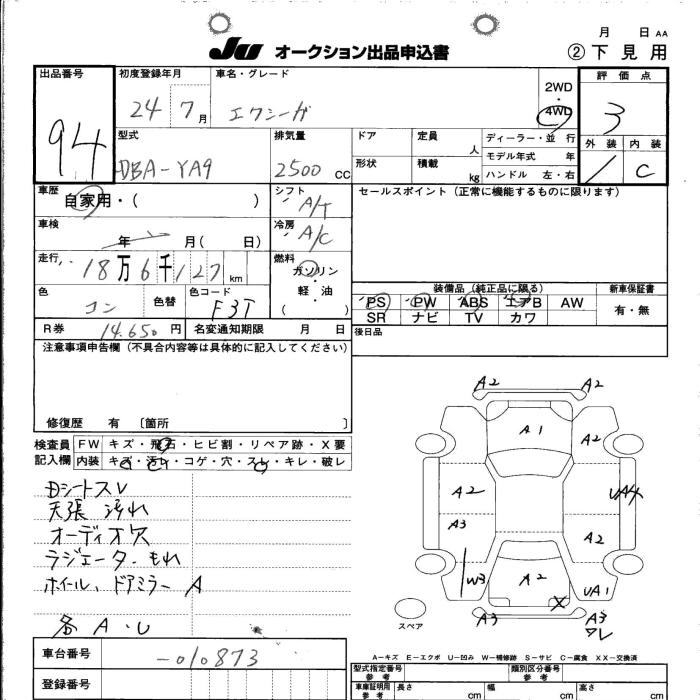 月 日 AA
JU オークション出品申込書 ②下見用
出品番号 94
初度登録年月 24 7月
車名・グレード エクシーガ
2WD・4WD
評価点 3
外装 内装 C
型式 DBA-YA9
排気量 2500 CC
ドア 定員 人
形状 積載 kg
ディーラー・並行
モデル年式 年
ハンドル 左・右
車歴 自家用・( )
シフト A/T
セールスポイント(正常に機能するものに限ります)
車検 年 月( 日)
冷房 A/C
走行 18万6千127km
燃料 ガソリン・軽油 ( )
色 コン 色替 色コード F3T
装備品(純正品に限る) 新車保証書
PS PW ABS エアB AW
SR ナビ TV カワ
有・無
R券 14.650円 名変通知期限 月 日
後日品
注意事項申告欄(不具合内容等は具体的に記入してください)
修復歴 有 〔箇所 〕
検査員記入欄
FW キズ・飛石・ヒビ割・リペア跡・X要
内装 キズ・汚レ・コゲ・穴・スレ・キレ・破レ
Dシートスレ
天張 汚れ
オーディオ穴
ラジエータ もれ
ホイール、ドアミラー A
各 A・U
A2 A2
A1
A2
A2 UA4
A3
A2
W3 A2 UA1
X
A3 A3
スペア
A-キズ E-エクボ U-凹み W-補修跡 S-サビ C-腐食 XX-交換済
車台番号 -010873
型式指定番号 参考 類別区分番号 参考
登録番号
車庫証明用 参考 長さ cm 幅 cm 高さ cm